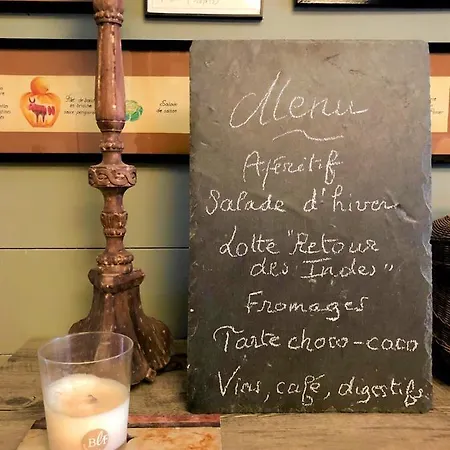 Menu
Apéritif
Salade d'hiver
Lotte "Retour
des Indes"
Fromages
Tarte choco-coco
Vins, café, digestifs
Salade
de saison